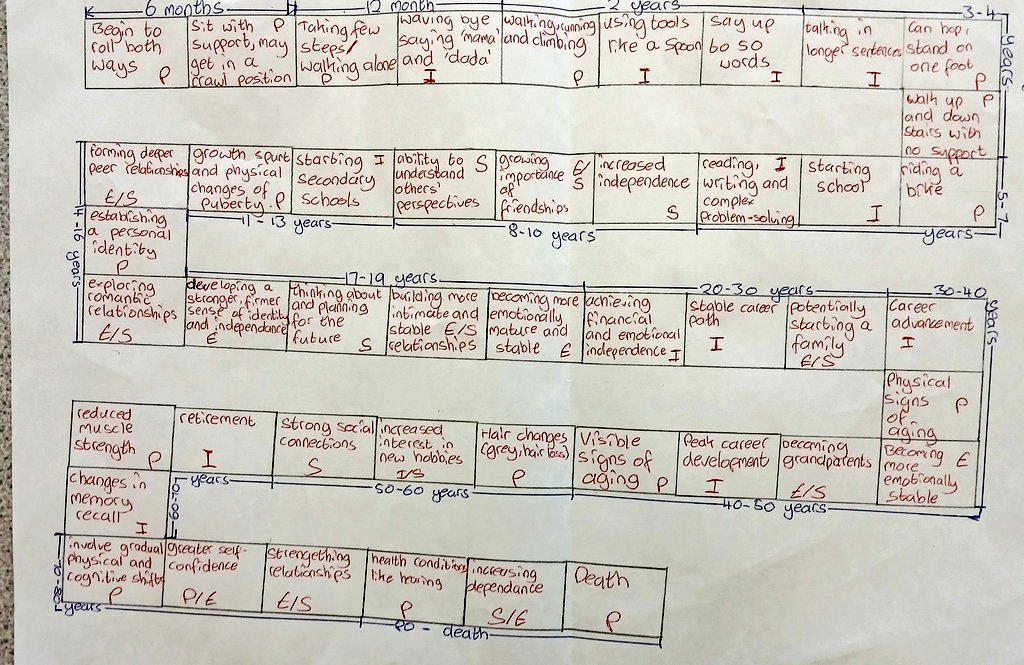 6 months
12 month
2 years
3-4 years
Begin to
roll both
ways P
Sit with P
support, may
get in a
crawl position
Taking few
steps/
walking alone
P
waving bye
saying 'mama'
and 'dada'
I
walking, running
and climbing
P
using tools
like a spoon
I
say up
to 50
words
I
talking in
longer sentences
I
Can hop,
stand on
one foot
P
walk up P
and down
stairs with
no support
riding a
bike
P
5-7 years
starting
school
I
reading, I
writing and
complex
problem-solving
increased
independence
S
growing E/S
importance
of
friendships
8-10 years
ability to S
understand
others'
perspectives
starting I
secondary
schools
growth spurt
and physical
changes of
puberty. P
11-13 years
forming deeper
peer relationships
E/S
establishing
a personal
identity
P
14-16 years
exploring
romantic
relationships
E/S
17-19 years
developing a
stronger, firmer
sense of identity
and independance
E
thinking about
and planning
for the
future S
building more
intimate and
stable E/S
relationships
becoming more
emotionally
mature and
stable E
20-30 years
achieving
financial
and emotional
independence I
Stable career
path
I
potentially
starting a
family
E/S
30-40 years
Career
advancement
I
Physical
signs P
of
aging
Becoming E
more
emotionally
stable
40-50 years
becoming
grandparents
E/S
Peak career
development
I
Visible
signs of
aging P
50-60 years
Hair changes
(grey, hair loss)
P
increased
interest in
new hobbies
I/S
strong social
connections
S
60-70 years
retirement
I
reduced
muscle
strength P
changes in
memory
recall I
70-80 years
involve gradual
physical and
cognitive shifts
P
greater self-
confidence
P/E
strengething
relationships
E/S
90 - death
health conditions
like hearing
P
increasing
dependance
S/E
Death
P